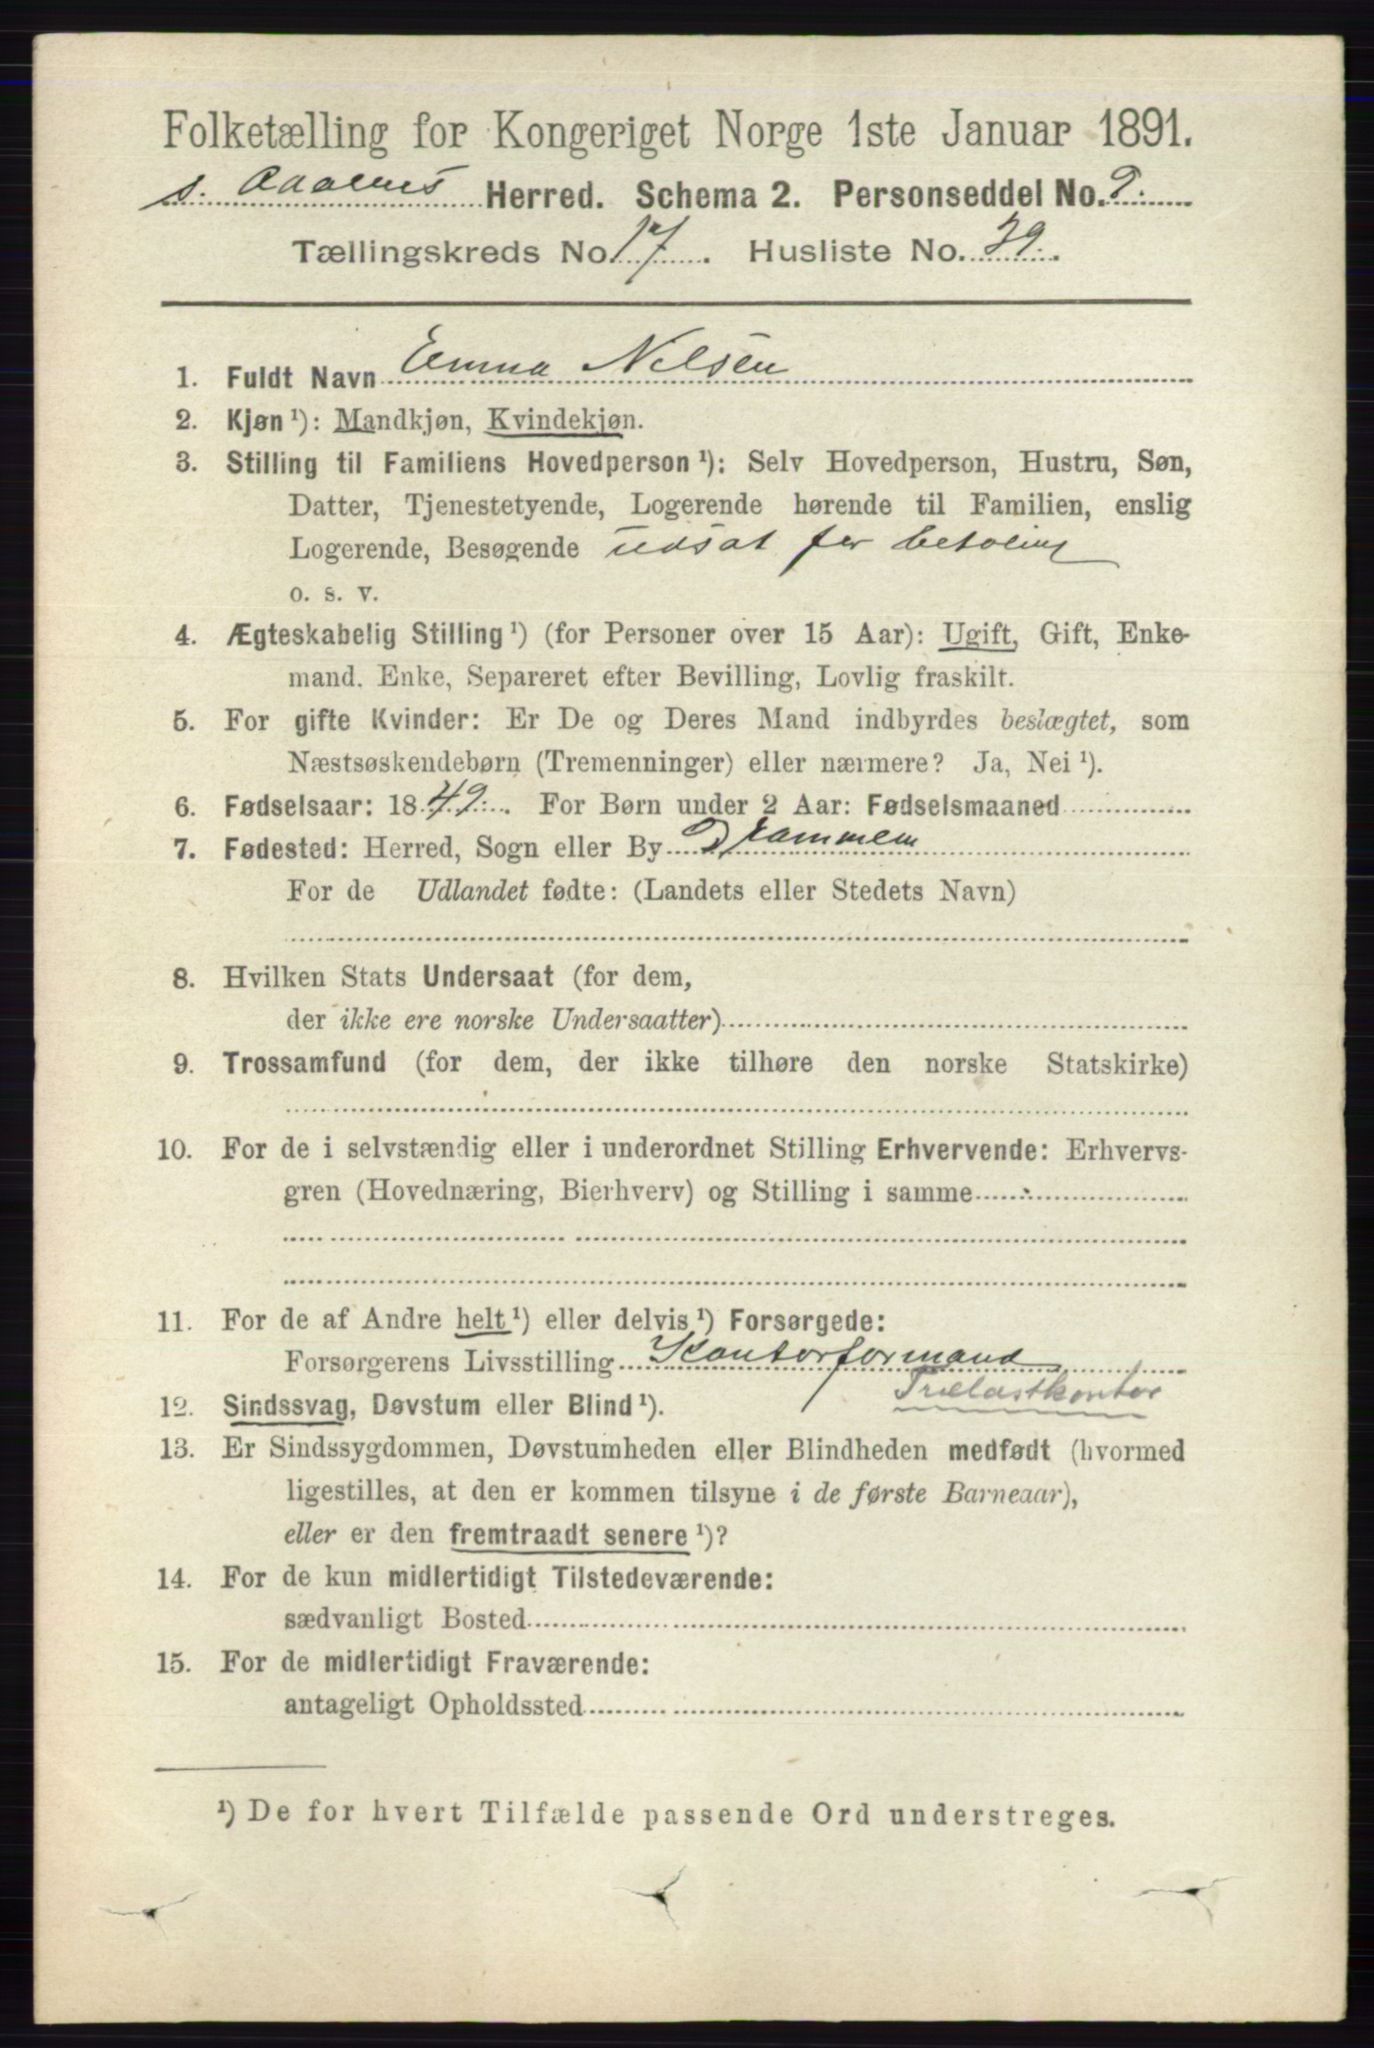 Folketælling for Kongeriget Norge 1ste Januar 1891.
s. Aadalens Herred. Schema 2. Personseddel No. 9.
Tællingskreds No. 17. Husliste No. 39.
1. Fuldt Navn Emma Nelsen
2. Kjøn ¹): Mandkjøn, Kvindekjøn.
3. Stilling til Familiens Hovedperson ¹): Selv Hovedperson, Hustru, Søn,
Datter, Tjenestetyende, Logerende hørende til Familien, enslig
Logerende, Besøgende udsat for betaling
o. s. v.
4. Ægteskabelig Stilling ¹) (for Personer over 15 Aar): Ugift, Gift, Enke-
mand. Enke, Separeret efter Bevilling, Lovlig fraskilt.
5. For gifte Kvinder: Er De og Deres Mand indbyrdes beslægtet, som
Næstsøskendebørn (Tremenninger) eller nærmere? Ja, Nei ¹).
6. Fødselsaar: 1849. For Børn under 2 Aar: Fødselsmaaned
7. Fødested: Herred, Sogn eller By Drammem
For de Udlandet fødte: (Landets eller Stedets Navn)
8. Hvilken Stats Undersaat (for dem,
der ikke ere norske Undersaatter)
9. Trossamfund (for dem, der ikke tilhøre den norske Statskirke)
10. For de i selvstændig eller i underordnet Stilling Erhvervende: Erhvervs-
gren (Hovednæring, Bierhverv) og Stilling i samme
11. For de af Andre helt ¹) eller delvis ¹) Forsørgede:
Forsørgerens Livsstilling Kontorformand
Trælastkontor
12. Sindssvag, Døvstum eller Blind ¹).
13. Er Sindssygdommen, Døvstumheden eller Blindheden medfødt (hvormed
ligestilles, at den er kommen tilsyne i de første Barneaar),
eller er den fremtraadt senere ¹)?
14. For de kun midlertidigt Tilstedeværende:
sædvanligt Bosted
15. For de midlertidigt Fraværende:
antageligt Opholdssted
¹) De for hvert Tilfælde passende Ord understreges.